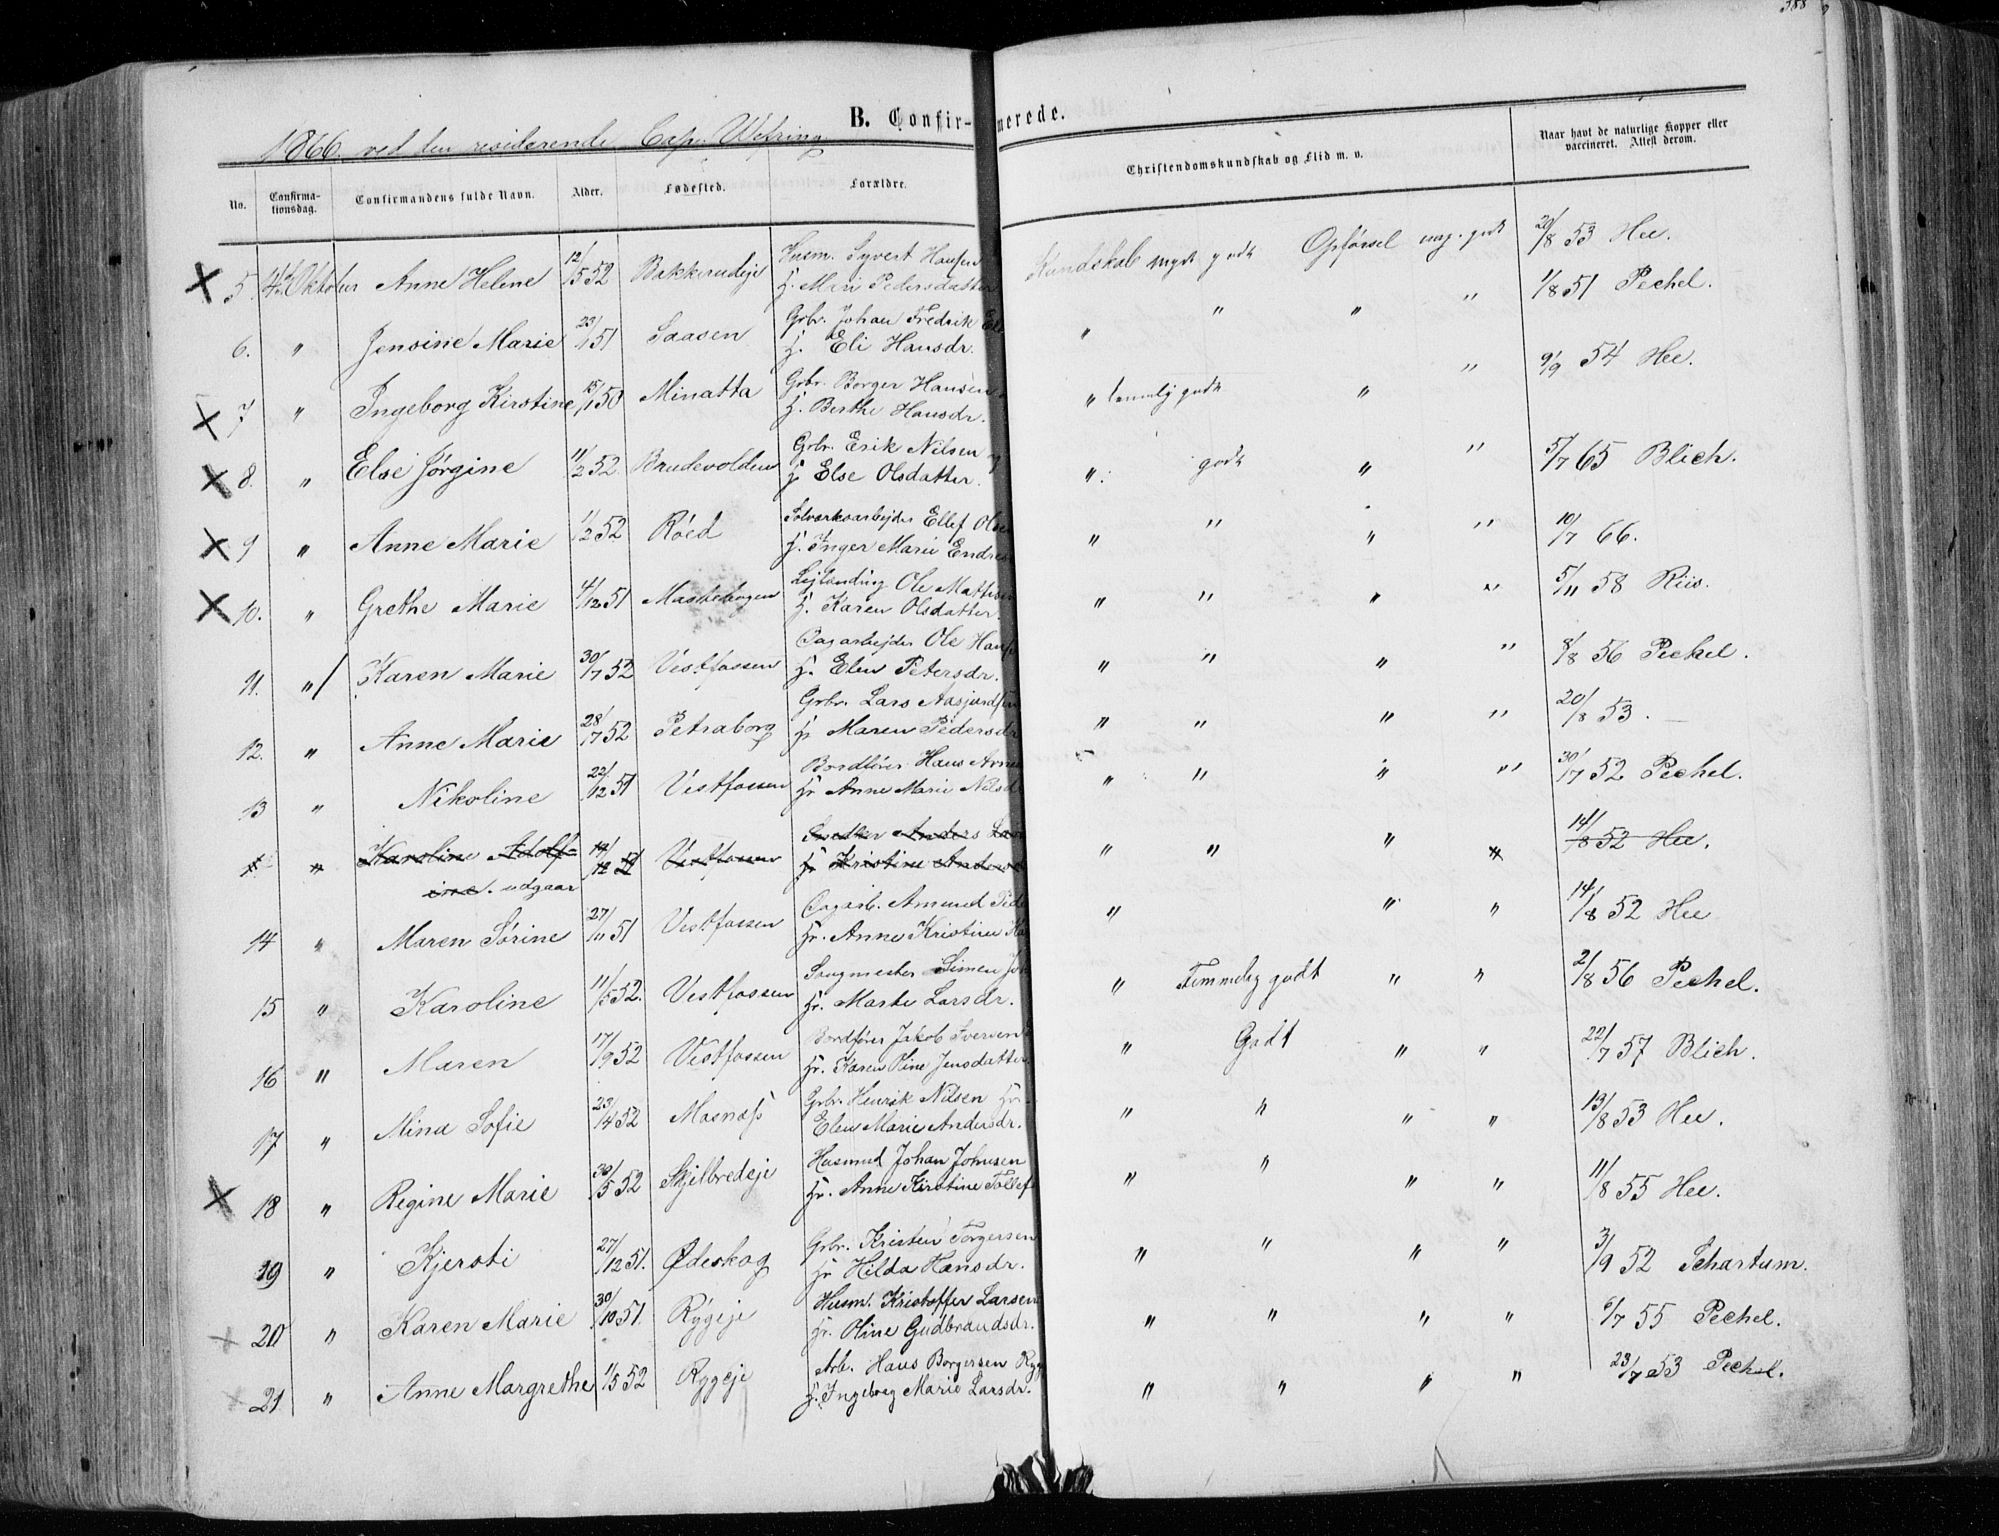 388
B. Confir-merede.
1866. ved den residerende Cap. Wefring
No. Confirmationsdag. Confirmandens fulde Navn. Alder. Fødested. Forældre. Christendomskundskab og Flid m. v. Naar havt de naturlige Kopper eller vaccineret. Attest derom.
5. Oktober Anne Helene 12/5 52 Bakkerudeje Husm. Syvert Hansen Kundskab meget godt Opførsel meg. godt 20/8 53 Hee.
H. Mari Pedersdatter
6. " Jensine Marie 23/1 51 Saasen Grbr. Johan Fredrik " " " " 1/8 51 Pechel.
H. Eli Hansdr.
7 " Ingeborg Kirstine 15/1 50 Minatta Grbr. Borger Hansen " temmelig godt " " 9/9 54 Hee.
H. Berthe Hansdr.
8. " Else Jørgine 11/2 52 Brudevolden Grbr. Erik Nilsen og " godt " " 5/7 65 Blich.
H. Else Olsdatter.
9 " Anne Marie 1/2 52 Røed Solværksarbejder Ellef Olsen " " " " 10/7 66.
H. Inger Marie Endres
10. " Grethe Marie 4/12 51 Mastebogen Lejlænding Ole Mathisen " " " " 5/11 58 Riis.
H. Karen Olsdatter.
11. " Karen Marie 30/7 52 Vestfossen Dagarbejder Ole Hans " " " " 8/8 56 Pechel.
H. Elen Petersdr.
12. " Anne Marie 28/7 52 Petraborg Grbr. Lars Aasjordsen " " " " 20/8 53.
H. Maren Pedersdr
13 " Nikoline 22/12 51 Vestfossen Bordfører Hans Arne " " " " 30/7 52 Pechel.
Hr Anne Marie Nilsdr
" Karoline Adolf- 12 51 Vestfossen Anders Lar " " " " 14/8 52 Hee.
ine. udgaar Hr Kristine Anders
14 " Maren Sørine 27/11 51 Vestfossen Dagarb. Amund Pede " " " 14/8 52 Hee
Hr. Anne Kristine
15 " Karoline 11/5 52. Vestfossen Saugmester Simen Joh " Temmelig godt " " 2/8 56 Pechel.
Hr. Marte Larsdr.
16 " Maren 17/9 52 Vestfossen Bordfører Jakob Iversen " Godt " " 22/7 57 Blich.
Hr. Karen Oline Jensdatter
17 " Mina Sofie 23/4 52 Mosnæss Grbr. Henrik Nilsen Hr. " " " " 13/8 53 Hee.
Elen Marie Andersdr.
18 " Regine Marie 30/5 52 Skjelbredeje Husmd Johan Johnsen " " " " 11/8 55 Hee.
Hr. Anne Kirstine Tollef
19 " Kjersti 27/12 51. Ødeskog Grbr. Kristen Torgersen " " " " 3/9 52 Schartum.
Hr Hilda Hansdr.
20 " Karen Marie 30/10 51. Rygeje Husm. Kristoffer Larsen " " " " 6/7 55 Pechel.
Hr. Oline Gudbrandsdr.
21 " Anne Margrethe 1/5 52 Rygeje Arb. Hans Borgersen Ryg " " " " 23/7 53 Pechel.
H. Ingeborg Marie Larsdr.